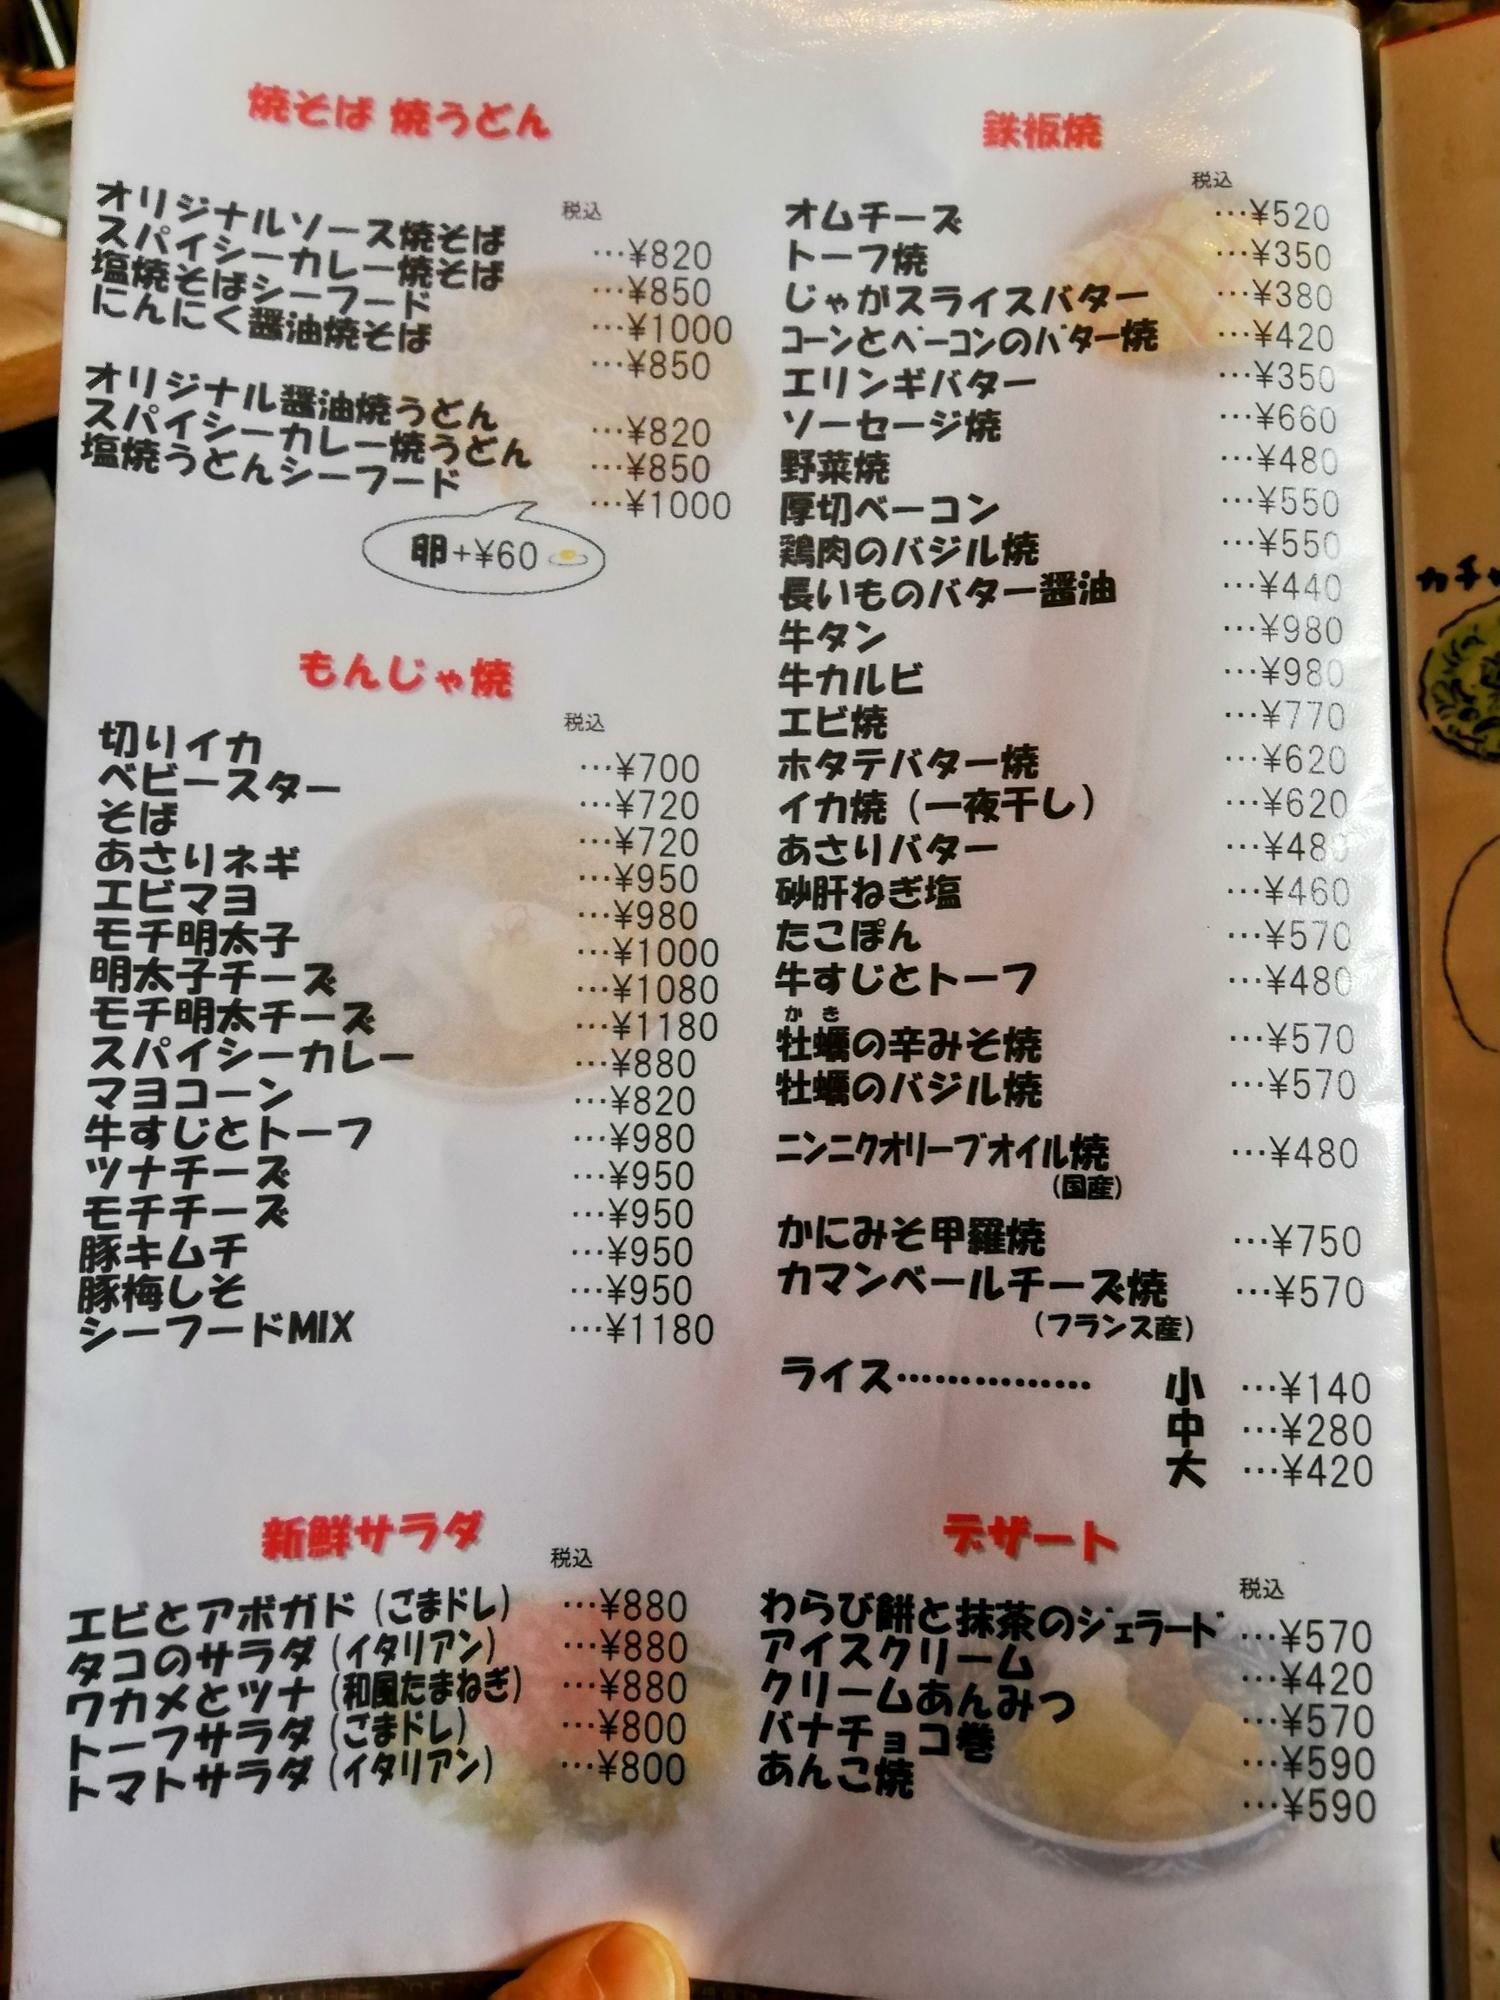 焼そば 焼うどん
税込
オリジナルソース焼そば …¥820
スパイシーカレー焼そば …¥850
塩焼そばシーフード …¥1000
にんにく醤油焼そば …¥850
オリジナル醤油焼うどん …¥820
スパイシーカレー焼うどん …¥850
塩焼うどんシーフード …¥1000
卵+¥60
もんじゃ焼
税込
切りイカ …¥700
ベビースター …¥720
そば …¥720
あさりネギ …¥950
エビマヨ …¥980
モチ明太子 …¥1000
明太子チーズ …¥1080
モチ明太チーズ …¥1180
スパイシーカレー …¥880
マヨコーン …¥820
牛すじとトーフ …¥980
ツナチーズ …¥950
モチチーズ …¥950
豚キムチ …¥950
豚梅しそ …¥950
シーフードMIX …¥1180
新鮮サラダ
税込
エビとアボガド(ごまドレ) …¥880
タコのサラダ(イタリアン) …¥880
ワカメとツナ(和風たまねぎ) …¥880
トーフサラダ(ごまドレ) …¥800
トマトサラダ(イタリアン) …¥800
鉄板焼
税込
オムチーズ …¥520
トーフ焼 …¥350
じゃがスライスバター …¥380
コーンとベーコンのバター焼 …¥420
エリンギバター …¥350
ソーセージ焼 …¥660
野菜焼 …¥480
厚切ベーコン …¥550
鶏肉のバジル焼 …¥550
長いものバター醤油 …¥440
牛タン …¥980
牛カルビ …¥980
エビ焼 …¥770
ホタテバター焼 …¥620
イカ焼(一夜干し) …¥620
あさりバター …¥480
砂肝ねぎ塩 …¥460
たこぽん …¥570
牛すじとトーフ …¥480
かき
牡蠣の辛みそ焼 …¥570
牡蠣のバジル焼 …¥570
ニンニクオリーブオイル焼 …¥480
(国産)
かにみそ甲羅焼 …¥750
カマンベールチーズ焼 …¥570
(フランス産)
ライス…………… 小 …¥140
中 …¥280
大 …¥420
デザート
税込
わらび餅と抹茶のジェラード …¥570
アイスクリーム …¥420
クリームあんみつ …¥570
バナチョコ巻 …¥590
あんこ焼 …¥590
カチ